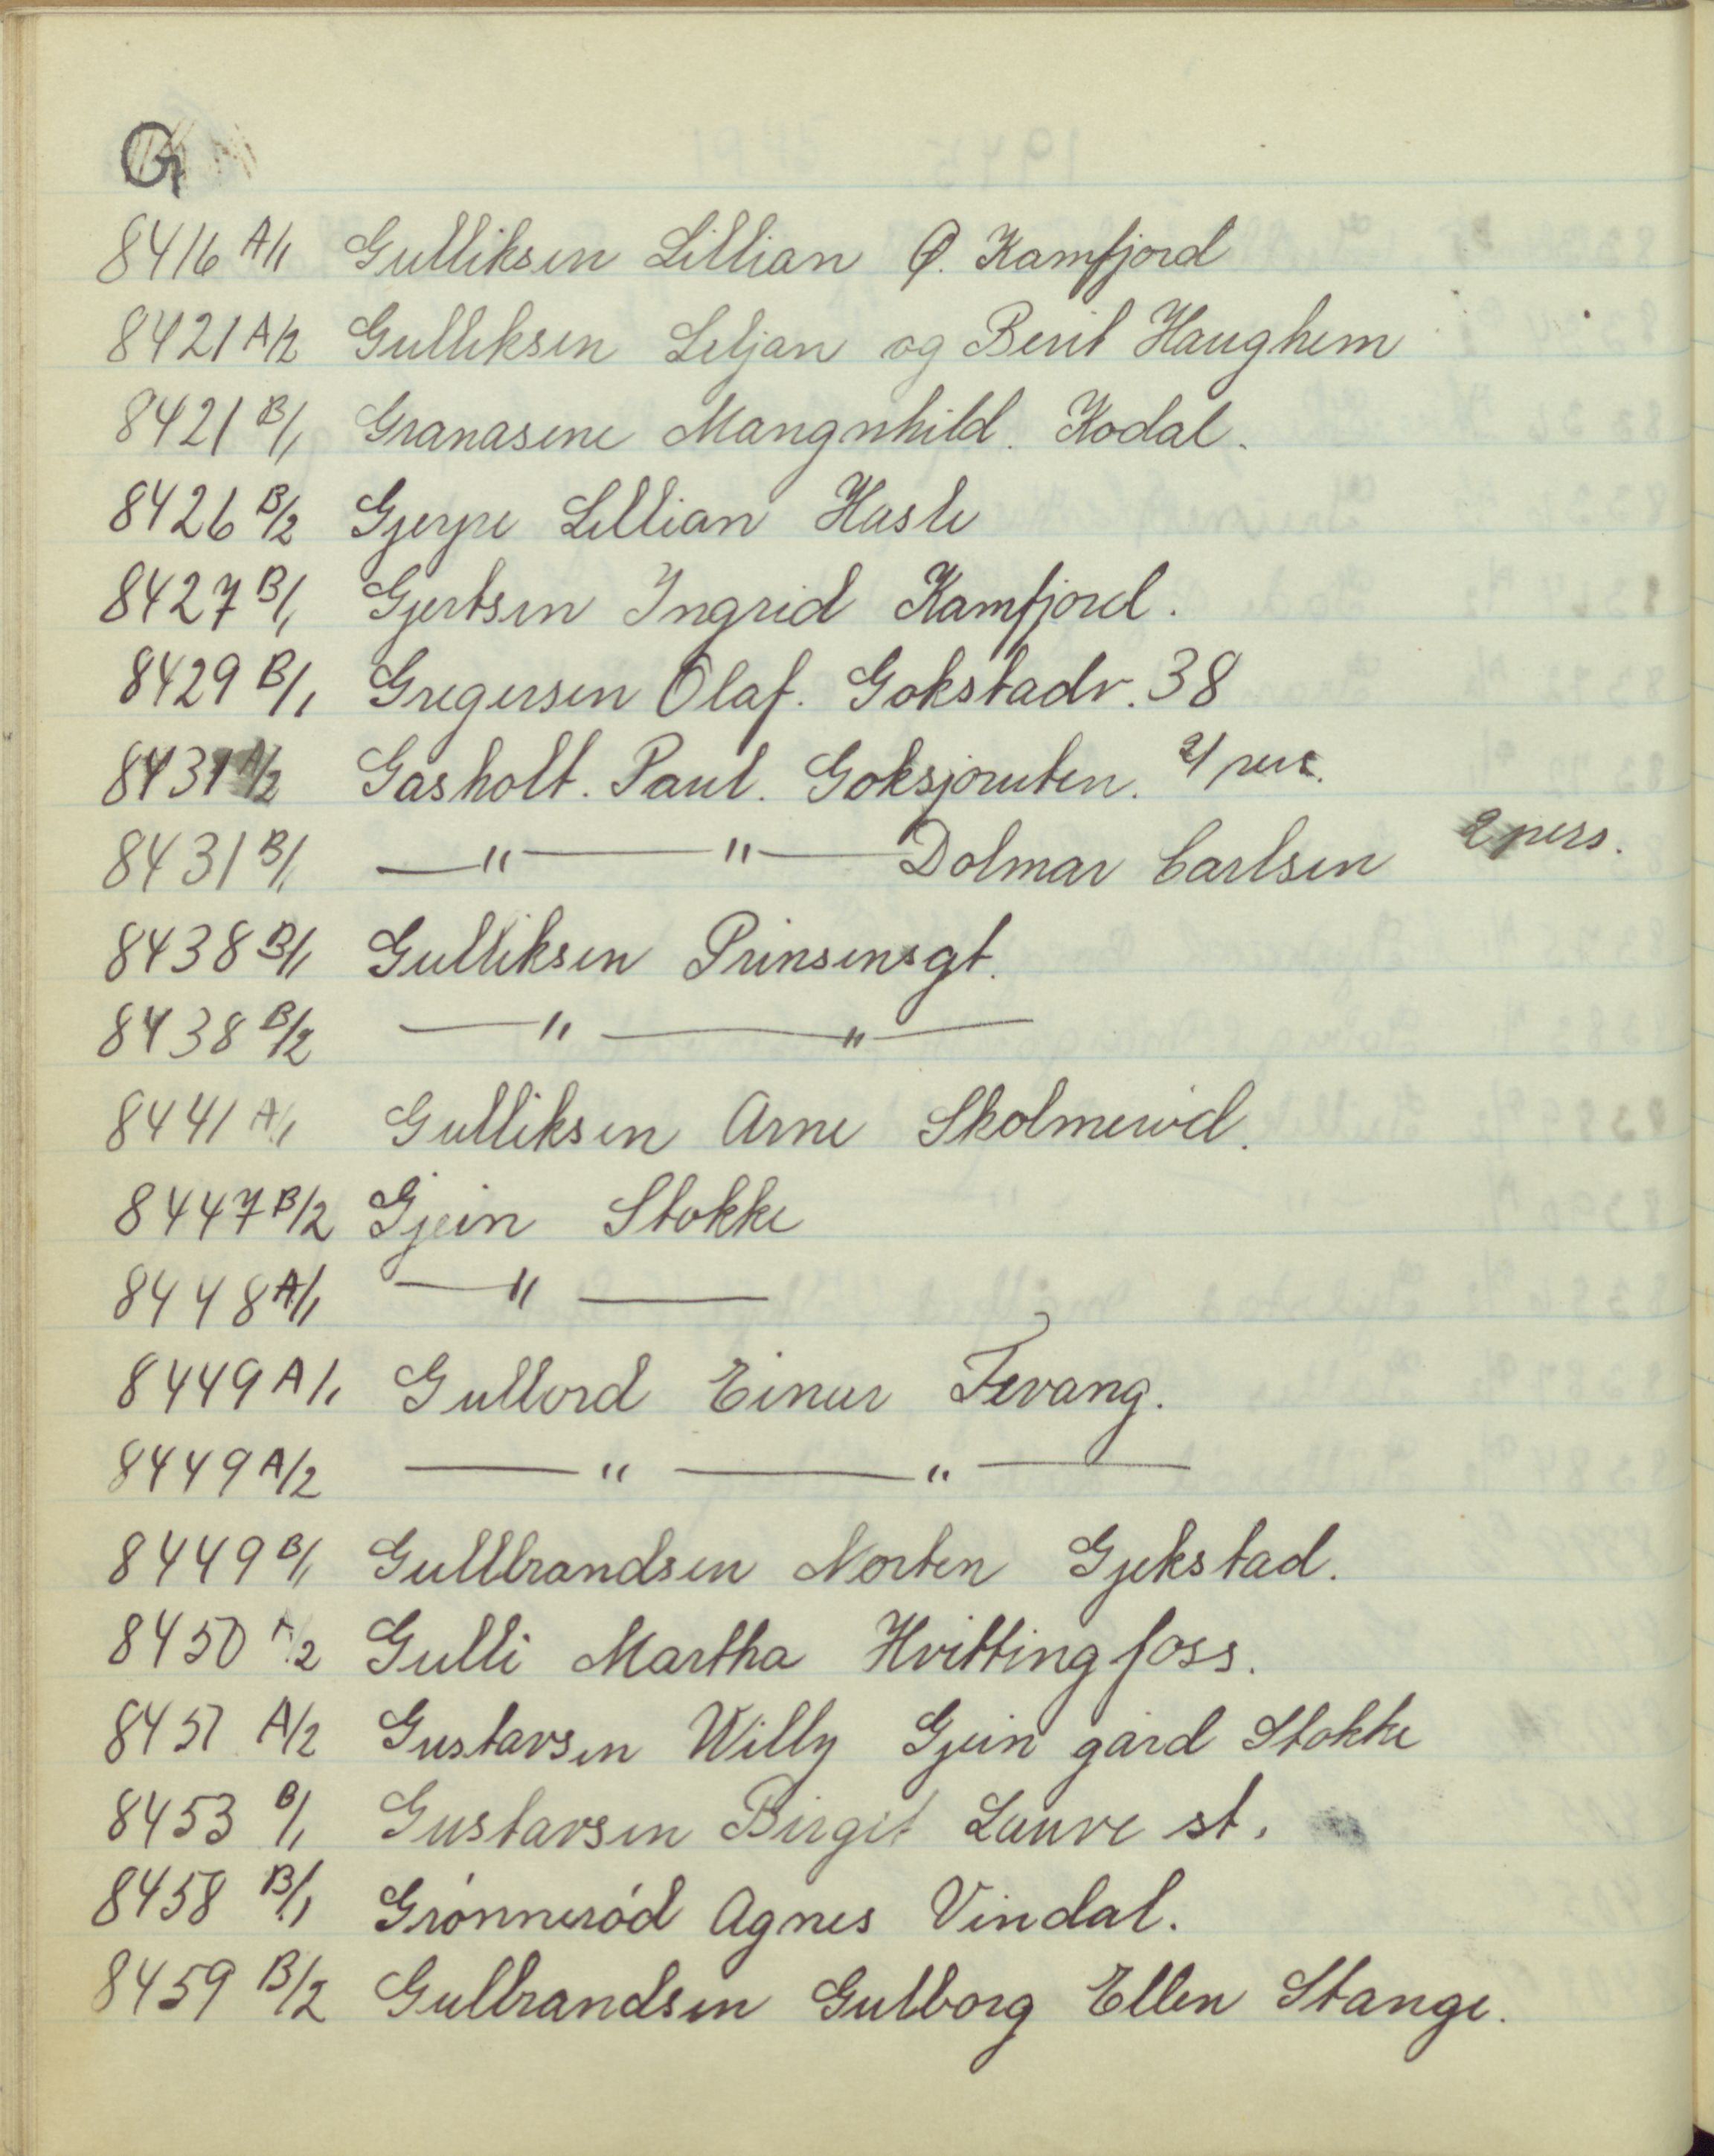 G
8416 A/1 Gulliksen Lillian Ø. Kamfjord
8421 A/2 Gulliksen Liljan og Berit Haughem
8421 B/1 Granasene Mangnhild. Kodal.
8426 B/2 Gjerpe Lillian Hasle
8427 B/1 Gjertsen Ingrid Kamfjord.
8429 B/1 Gregersen Olaf. Gokstadv. 38
8431 A/2 Gasholt. Paul. Goksjøruten.
8431 B/1 —"——"— Dolmar Carlsen 2 pers.
8438 B/1 Gulliksen Prinsensgt.
8438 B/2 —"——"—
8441 A/1 Gulliksen Arne Skolmerød.
8447 B/2 Gjein Stokke
8448 A/1 —"——
8449 A/1 Gullord Einar Fevang.
8449 A/2 ——"——"——
8449 B/1 Gullbrandsen Morten Gjekstad.
8450 A/2 Gulli Martha Hvittingfoss.
8451 A/2 Gustavsen Willy Gjein gård Stokke
8453 B/1 Gustavsen Birgit Lauve st.
8458 B/1 Grønnerød Agnes Vindal.
8459 B/2 Gulbrandsen Gulborg Ellen Stange.